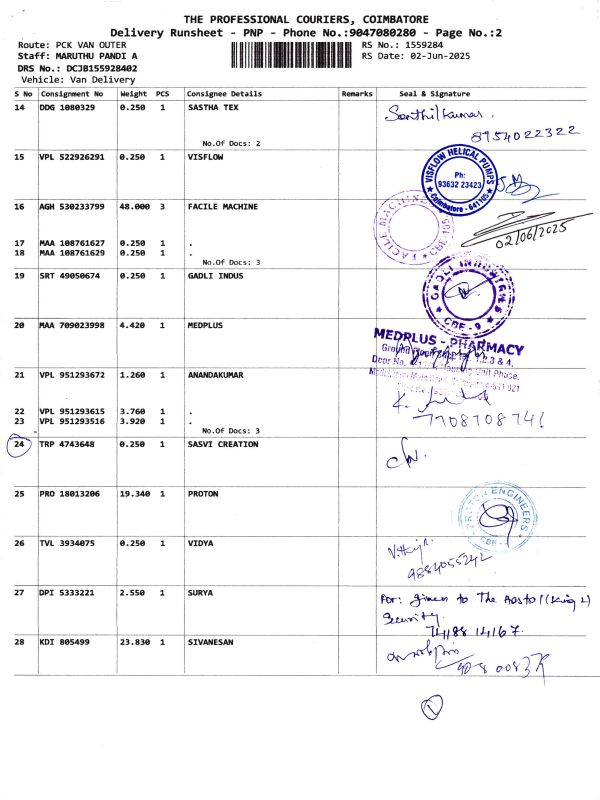 THE PROFESSIONAL COURIERS, COIMBATORE
Delivery Runsheet - PNP - Phone No.:9047080280 - Page No.:2
Route: PCK VAN OUTER
RS No.: 1559284
Staff: MARUTHU PANDI A
RS Date: 02-Jun-2025
DRS No.: DCJB155928402
Vehicle: Van Delivery
S No Consignment No Weight PCS Consignee Details Remarks Seal & Signature
14 DDG 1080329 0.250 1 SASTHA TEX
Senthil kumar.
8954022322
No.Of Docs: 2
15 VPL 522926291 0.250 1 VISFLOW
VISFLOW HELICAL PUMPS
Ph:
93632 23423
Coimbatore - 641105
16 AGH 530233799 48.000 3 FACILE MACHINE
FACILE MACHINE
02/06/2025
17 MAA 108761627 0.250 1 .
18 MAA 108761629 0.250 1 .
No.Of Docs: 3
19 SRT 49050674 0.250 1 GADLI INDUS
GADLI INDUSTRIES
CBE - 9
20 MAA 709023998 4.420 1 MEDPLUS
MEDPLUS - PHARMACY
Ground Floor
Door No.
& 4,
Unit Phase,
21 VPL 951293672 1.260 1 ANANDAKUMAR
22 VPL 951293615 3.760 1 .
23 VPL 951293516 3.920 1 .
7708708741
No.Of Docs: 3
24 TRP 4743648 0.250 1 SASVI CREATION
25 PRO 18013206 19.340 1 PROTON
PROTON ENGINEERS
CBE -
26 TVL 3934075 0.250 1 VIDYA
9884055242
27 DPI 5333221 2.550 1 SURYA
For: given to The
Security.
74188 14167.
28 KDI 805499 23.830 1 SIVANESAN
1